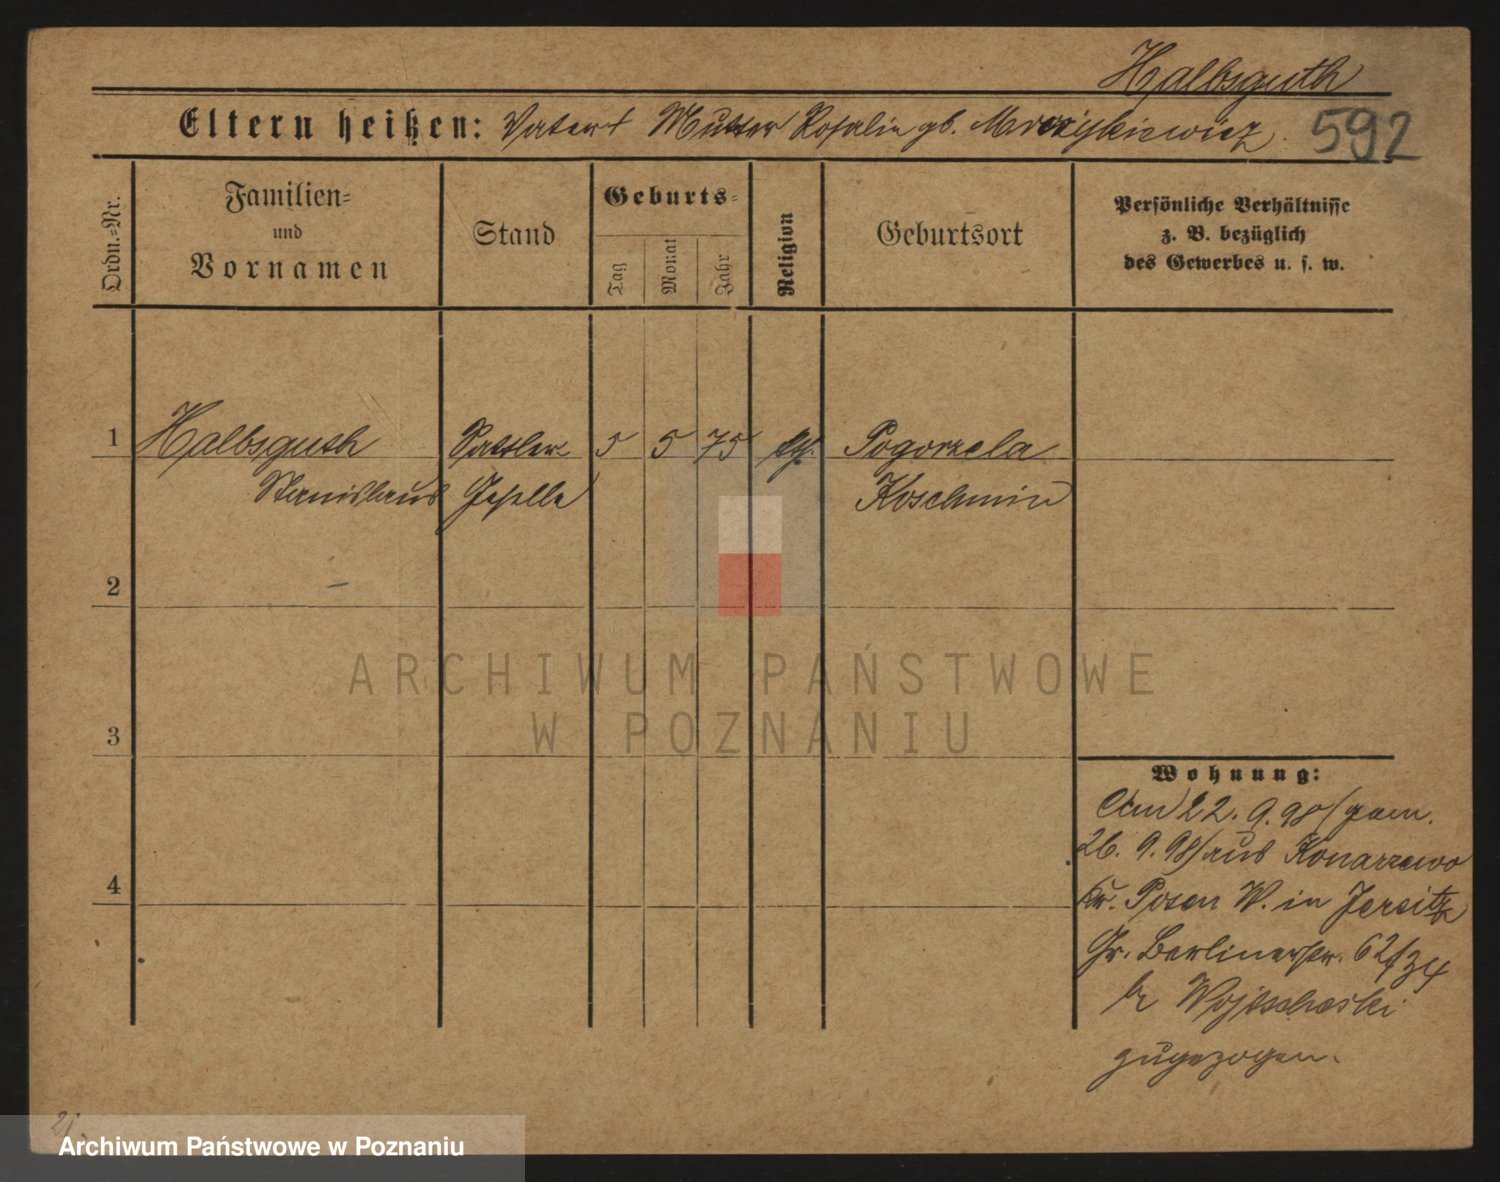 Halbsguth
Eltern heißen: Vater † Mutter Rosalie gb. 592
Ordn.=Nr.
Familien=
und
Vornamen
Stand
Geburts=
Tag
Monat
Jahr
Religion
Geburtsort
Persönliche Verhältnisse
z. B. bezüglich
des Gewerbes u. s. w.
1 Halbsguth Sattler 5 5 75 kth. Pogorzela
Stanislaus Geselle Koschmin
2
3
4
Wohnung:
Am 22. 9. 98/gem.
26. 9. 98/aus Konarzewo
Kr. Posen W. in Jersitz
Gr. Berlinerstr. 62/
b/
zugezogen.
ARCHIWUM PAŃSTWOWE
W POZNANIU
21.
Archiwum Państwowe w Poznaniu